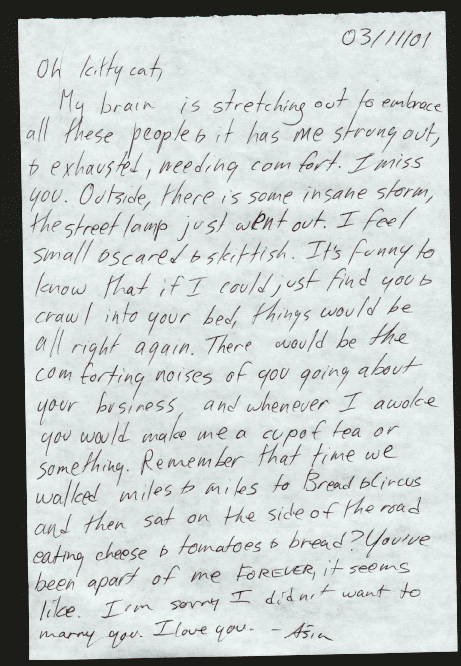 03/11/01
Oh kitty cat,
My brain is stretching out to embrace
all these people & it has me strung out,
& exhausted, needing comfort. I miss
you. Outside, there is some insane storm,
the street lamp just went out. I feel
small & scared & skittish. It's funny to
know that if I could just find you &
crawl into your bed, things would be
all right again. There would be the
comforting noises of you going about
your business, and whenever I awoke
you would make me a cup of tea or
something. Remember that time we
walked miles & miles to Bread & Circus
and then sat on the side of the road
eating cheese & tomatoes & bread? You've
been apart of me FOREVER, it seems
like. I'm sorry I didn't want to
marry you. I love you. - Asia